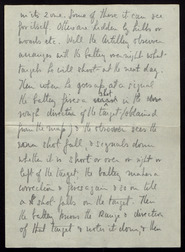 into zone. Some of these it can see
for itself. Others are hidden by hills or
woods etc. Well the Artillery observer
arranges with the battery overnight what
targets he will shoot at the next day.
Then when he goes up, at a signal
the battery fires a shot in the
rough direction of the target (obtained
from the map) & the observer sees the
shot fall, & signals down
whether it is short or over or right or
left of the target. The battery makes a
correction & fires again & so on till
a shot falls on the target. Then
the battery knows the range & direction
of that target & notes it down, & then